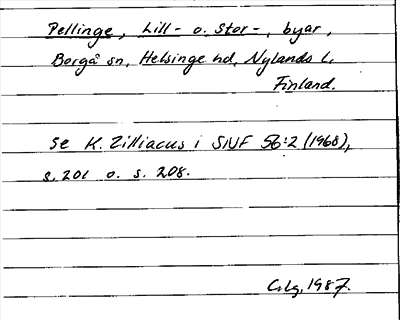 Pellinge, Lill- o. Stor-, byar,
Borgå sn, Helsinge hd, Nylands l.
Finland.
Se K. Zilliacus i SNF 56:2 (1968),
s. 201 o. s. 208.
1987.